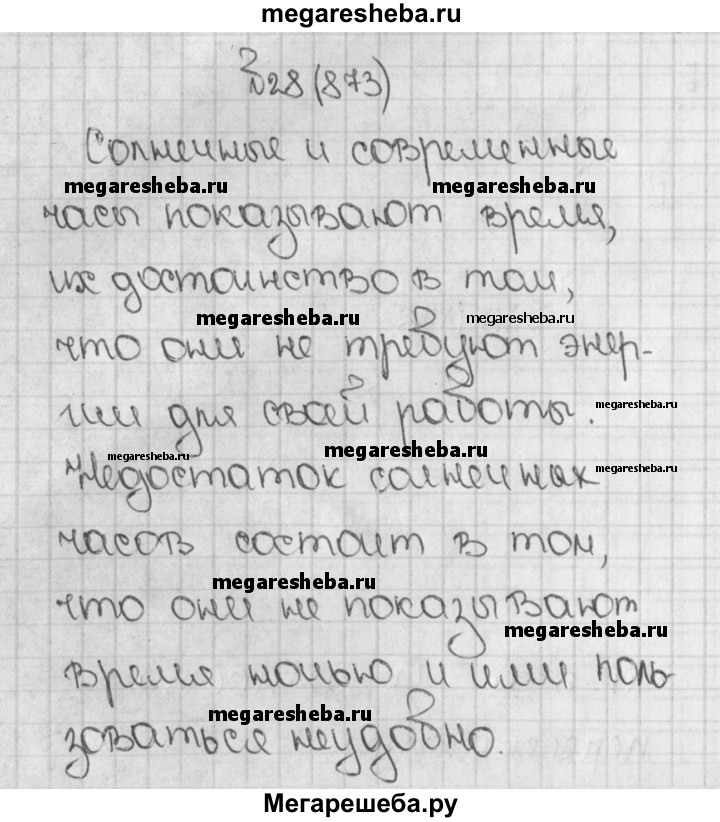 megaresheba.ru
№28 (873)
Солнечные и современные
megaresheba.ru megaresheba.ru
часы показывают время,
их достоинство в том,
megaresheba.ru megaresheba.ru
что они не требуют энер-
гии для своей работы.
megaresheba.ru
megaresheba.ru megaresheba.ru megaresheba.ru
Недостаток солнечных
часов состоит в том,
megaresheba.ru
что они не показывают
megaresheba.ru
время ночью и ими поль-
megaresheba.ru
зоваться неудобно.
Мегарешеба.ру